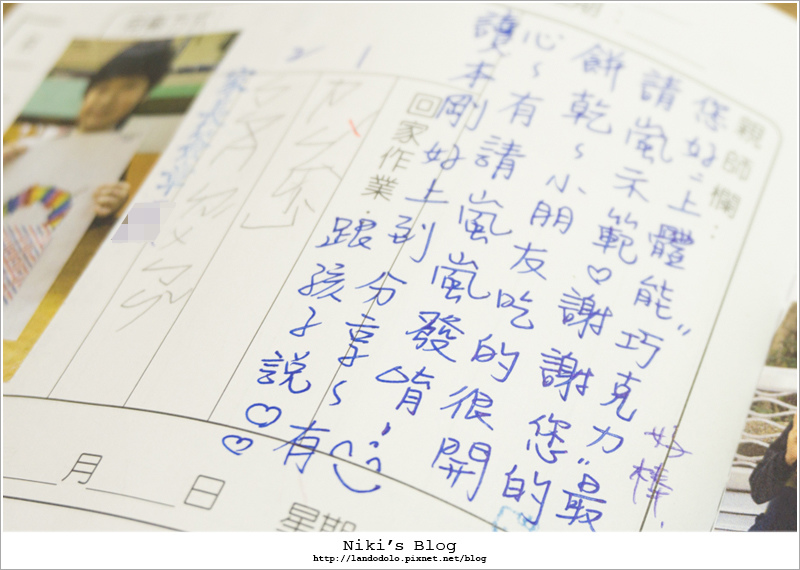 親師欄：
您好：上體能"巧克力"最
請嵐示範♡謝謝您的
餅乾～小朋友吃的很開
心～有請嵐嵐發唷！
讀本剛好上到分享～有
跟孩子說♡♡
好棒！
回家作業
1
2
月 日
星期
Niki's Blog
http://landodolo.pixnet.net/blog